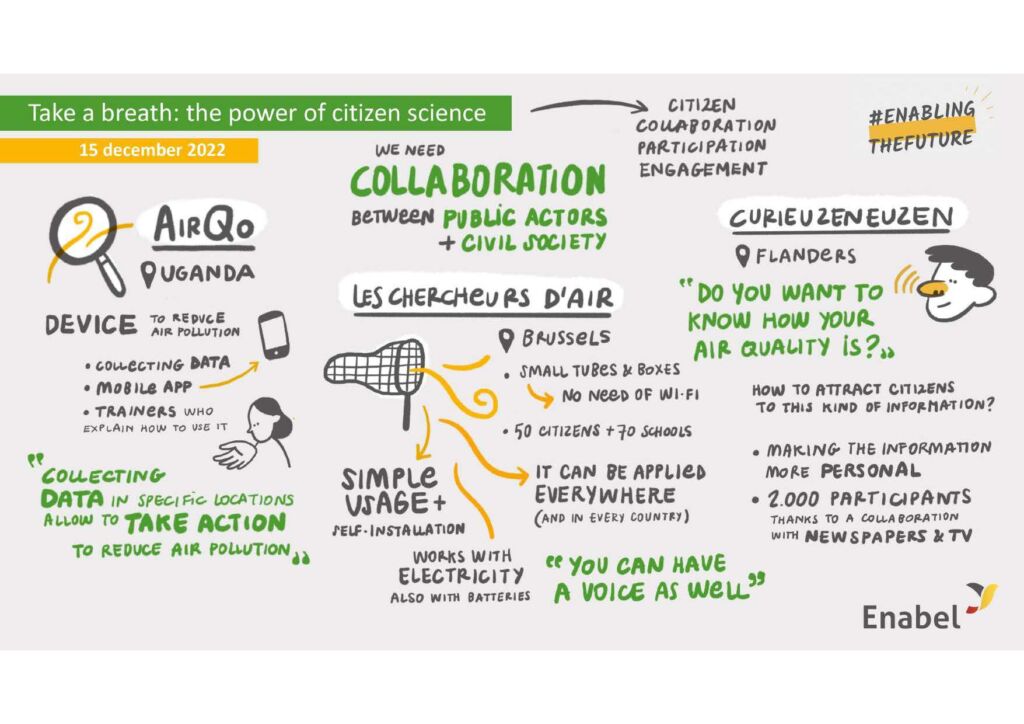 Take a breath: the power of citizen science
15 december 2022
CITIZEN
COLLABORATION
PARTICIPATION
ENGAGEMENT
#ENABLING
THEFUTURE
WE NEED
COLLABORATION
BETWEEN PUBLIC ACTORS
+ CIVIL SOCIETY
AIRQO
UGANDA
DEVICE TO REDUCE
AIR POLLUTION
• COLLECTING DATA
• MOBILE APP
• TRAINERS WHO
EXPLAIN HOW TO USE IT
"COLLECTING
DATA IN SPECIFIC LOCATIONS
ALLOW TO TAKE ACTION
TO REDUCE AIR POLLUTION"
LES CHERCHEURS D'AIR
BRUSSELS
• SMALL TUBES & BOXES
NO NEED OF WI-FI
• 50 CITIZENS + 70 SCHOOLS
SIMPLE
USAGE +
SELF-INSTALLATION
IT CAN BE APPLIED
EVERYWHERE
(AND IN EVERY COUNTRY)
WORKS WITH
ELECTRICITY
ALSO WITH BATTERIES
"YOU CAN HAVE
A VOICE AS WELL"
CURIEUZENEUZEN
FLANDERS
"DO YOU WANT TO
KNOW HOW YOUR
AIR QUALITY IS?"
HOW TO ATTRACT CITIZENS
TO THIS KIND OF INFORMATION?
• MAKING THE INFORMATION
MORE PERSONAL
• 2.000 PARTICIPANTS
THANKS TO A COLLABORATION
WITH NEWSPAPERS & TV
Enabel